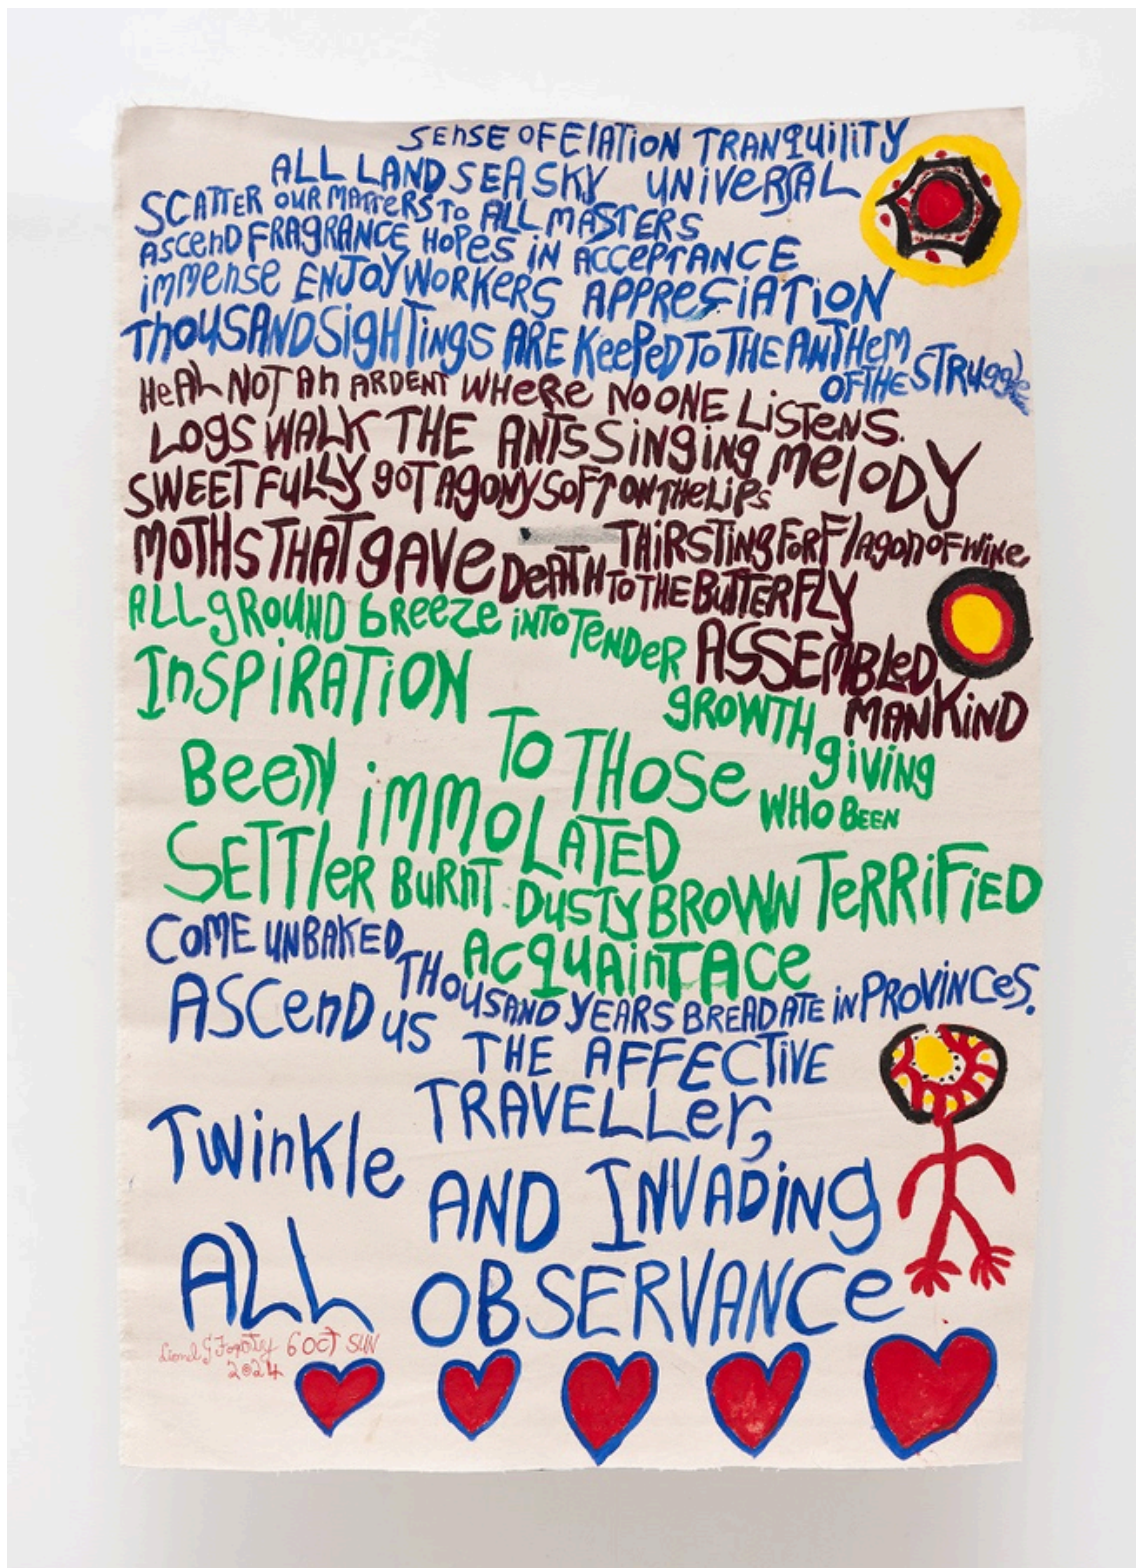 SENSE OF ElATION TRANQUiliTY
ALL LAND SEA SKY UNiVERSAL
SCATTER OUR MATTERS TO ALL MASTERS
ASCenD FRAGRANCE HOPES IN ACCEPTANCE
immense ENJOY WORKERS APPRESiATiON
THOUSAND SigHTings ARE KeePeD TO THE ANTHEM
OF THE STRUggle
HeAL NOT An ARDENT WHERE NO ONE LiSTeNS.
LOGS WALK THE ANTS SinGing MelODY
SWEETFULLY gOT AgONY SOFT ON THE LiPs
THiRSTiNg FOR FlagOn OF WiNe
MOTHS THAT gAVe DeATH TO THE BUTTERFLY
ALL gROUND bReeZe iNTO TeNDeR
ASSEMBLeD
InSPiRATiON
gROWTH
MANKiND
TO THOSe
giViNg
BeeN iMMOLATED
WHO BEEN
SETTleR BURnT. DUSTY BROWN TeRRiFiED
COME UNBAKED
AcquAinTAce
THOUSAND YEARS BREAD ATE iN PROViNCeS.
ASCenD US
THE AFFECTiVE
TRAVELLer,
TWinKle
AND INVADiNg
ALL
OBSERVANCe
Lionel G Fogarty 6 OCT SUN
2024